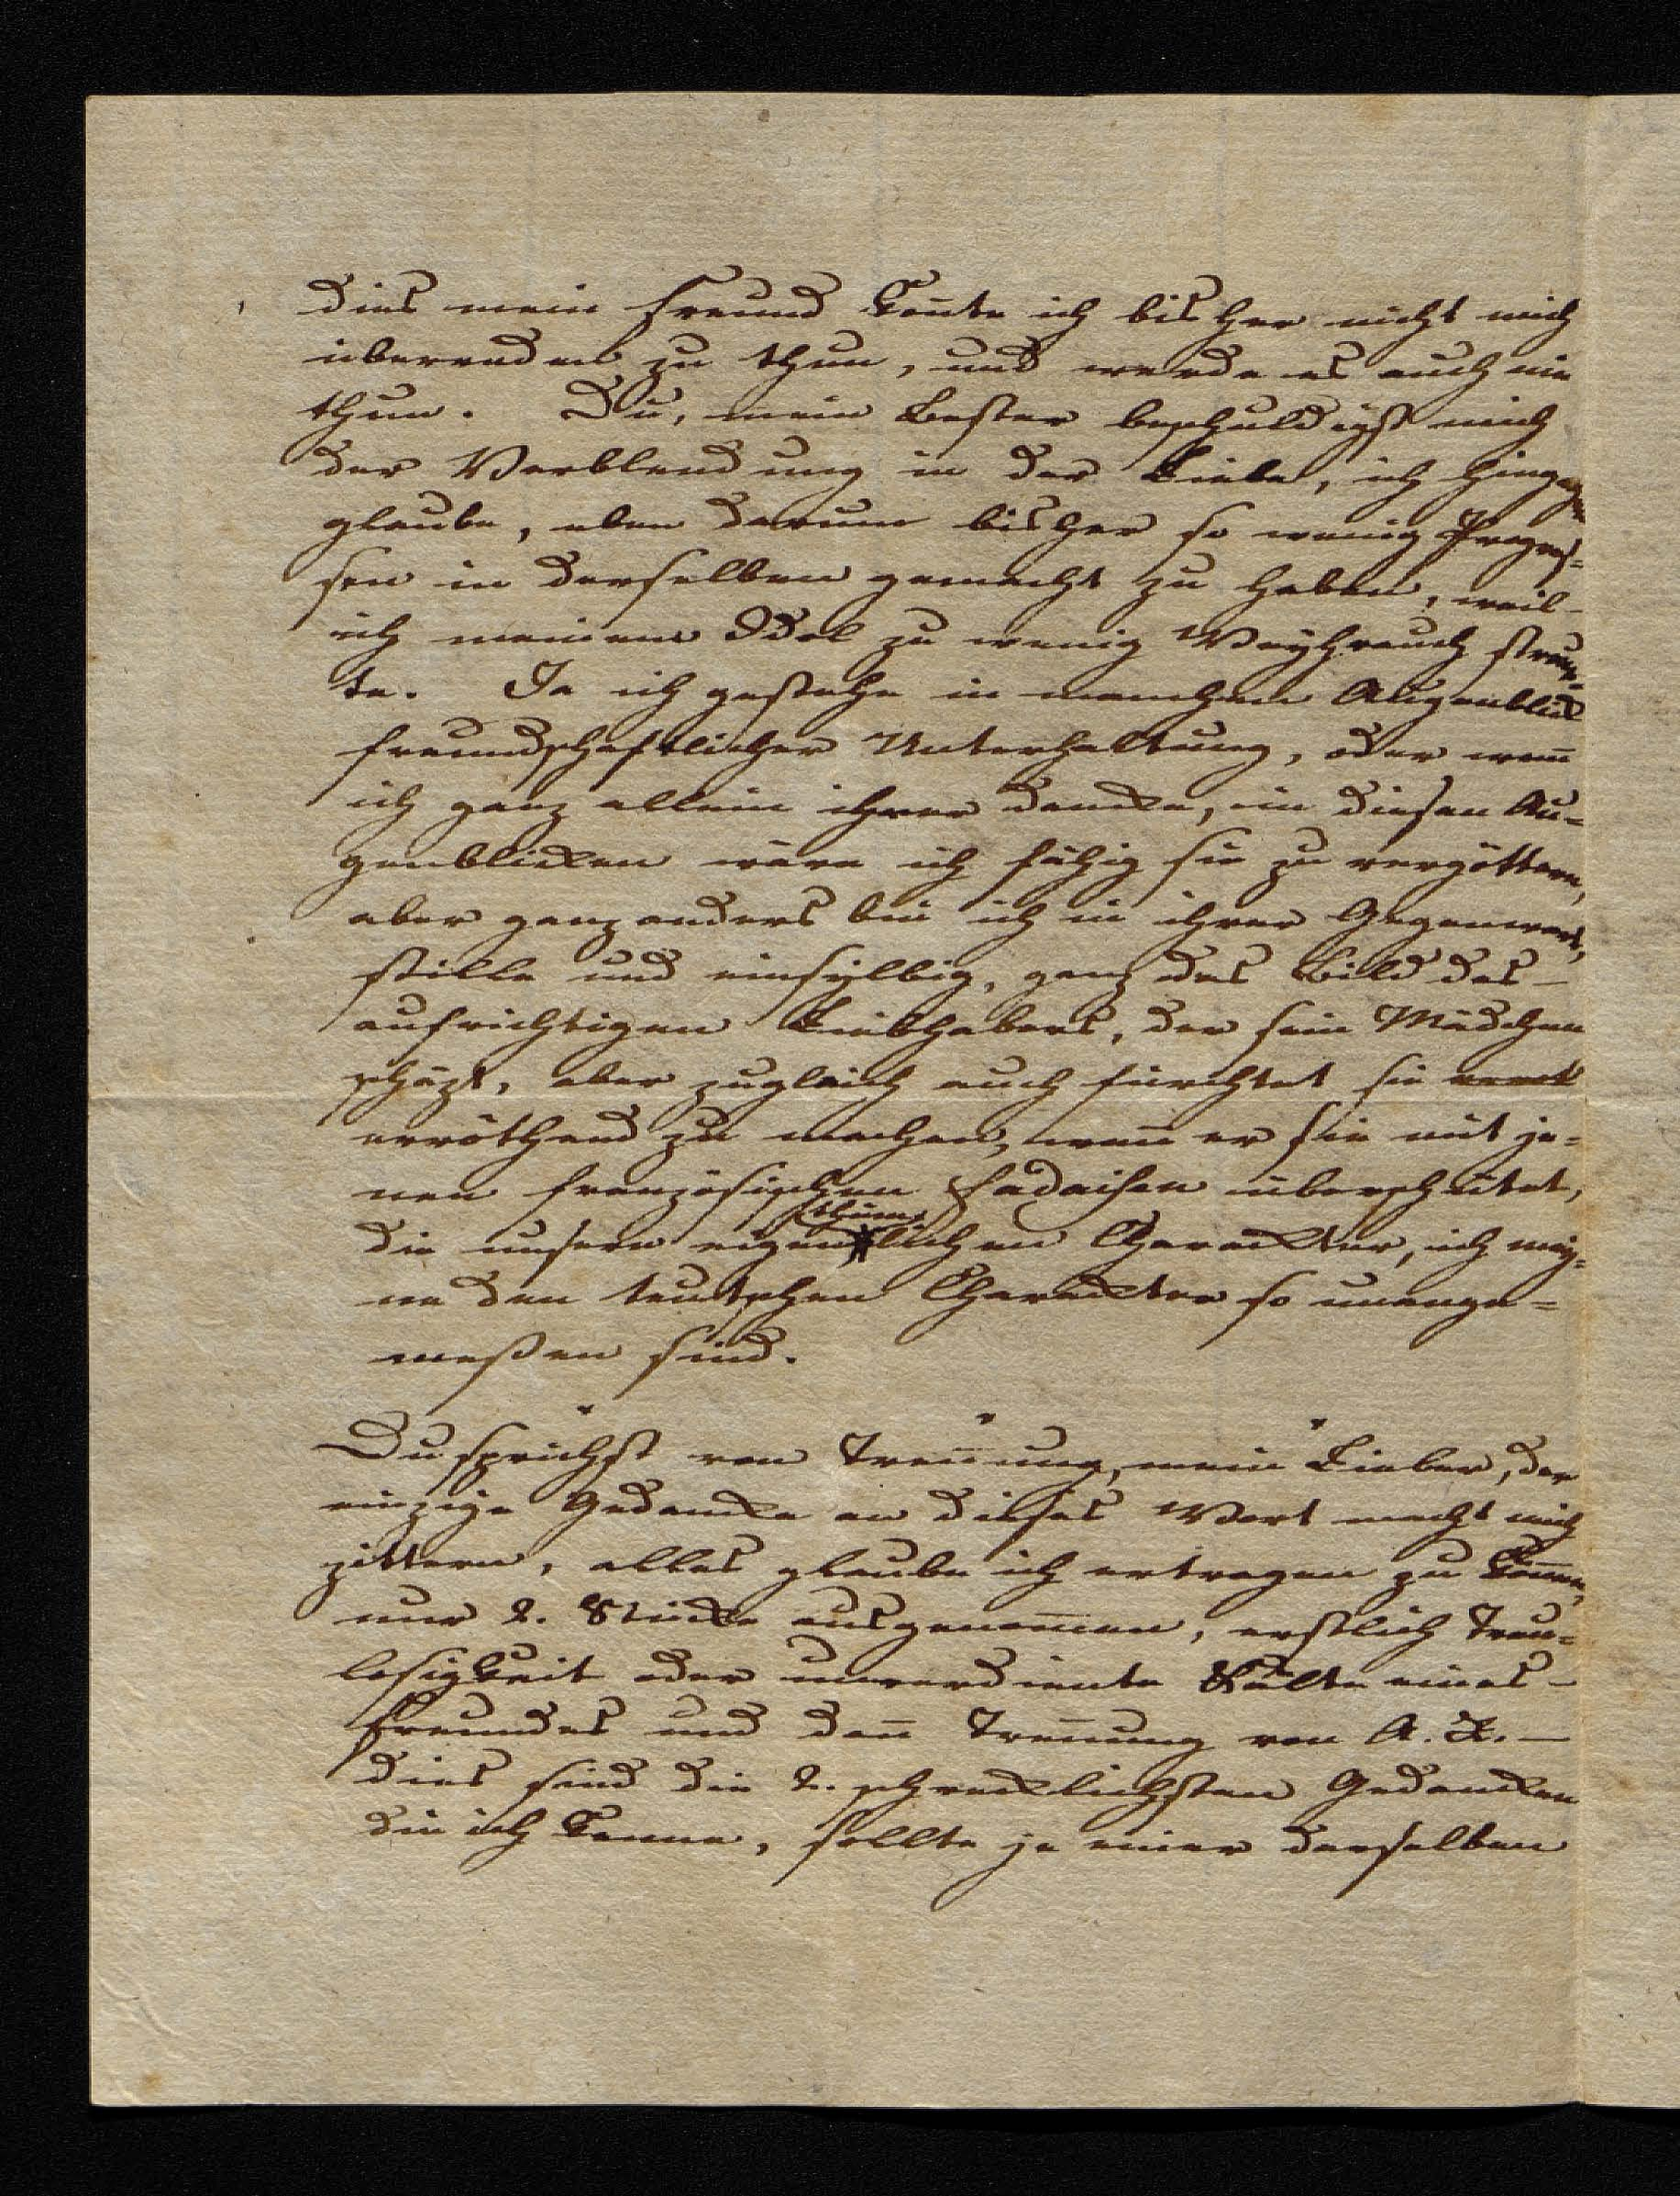 dies mein Freund kon̄te ich bisher nicht mich
überreden zu thun, und werde es auch nie
thun. Du, mein Bester beschuldigst mich
der Verblendung in der Liebe, ich hingegen
glaube, eben darum bisher so wenig Progres=
sen in derselben gemacht zu haben, weil
ich meinem Idol zu wenig Weyhrauch streu=
te. Ja ich gestehe in manchem Augenblick
freundschaftlicher Unterhaltung, oder wen̄
ich ganz allein ihrer dencke, in diesen Au=
genblicken wäre ich fähig sie zu vergöttern,
aber ganz anders bin ich in ihrer Gegenwart,
stille und einsylbig, ganz das Bild des
aufrichtigen Liebhabers, der sein Mädchen
schäzt, aber zugleich auch fürchtet sie
erröthend zu machen, wen̄ er sie mit je=
nen französischen Fadaisen überschüttet,
die unserm eigenthümlichen Charackter, ich mey=
ne den teutschen Charackter so unange=
meßen sind.
Du sprichst von Tren̄ung, mein Lieber, der
einzige Gedancke an dieses Wort macht mich
zittern, alles glaube ich ertragen zu kön̄en,
nur 2. Stücke ausgenom̄en, erstlich Treu=
losigkeit oder unverdiente Kälte eines
Freundes und dan̄ Tren̄ung von A. K. —
dies sind die 2. schrecklichsten Gedancken
die ich kenne, sollte je einer derselben